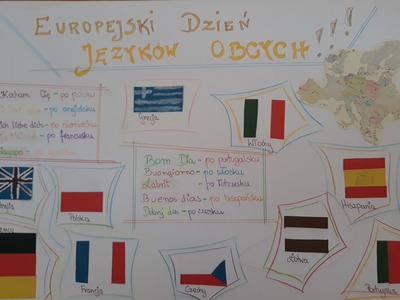 EUROPEJSKI DZIEŃ
JĘZYKÓW OBCYCH!!!
Kocham Cię - po polsku
- po angielsku
Ich liebe dich - po niemiecku
- po francusku
Grecja
Włochy
Bom Dia - po portugalsku
Buongiorno - po włosku
- po litewsku
Buenos dias - po hiszpańsku
Dobrý den - po czesku
Anglia
Polska
Hiszpania
Niemcy
Francja
Czechy
Łotwa
Portugalia